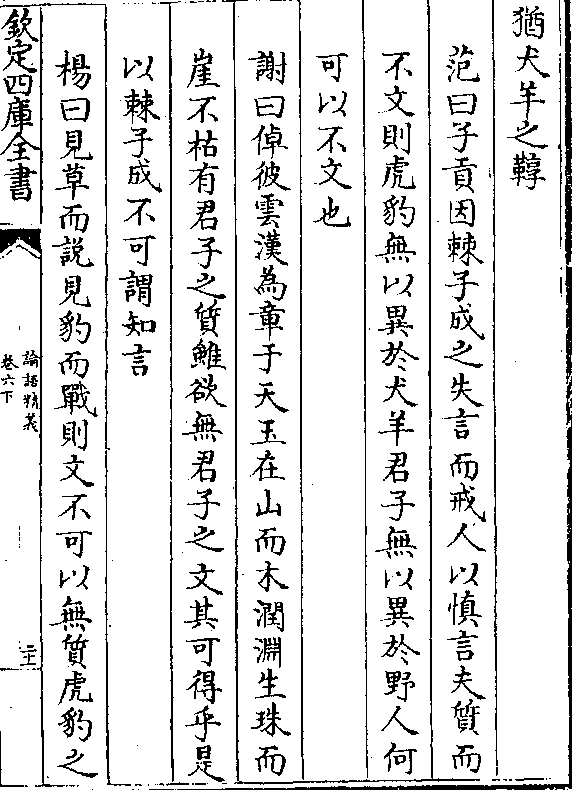 猶犬羊之鞟
范曰子貢因棘子成之失言而戒人以慎言夫質而
不文則虎豹無以異於犬羊君子無以異於野人何
可以不文也
謝曰倬彼雲漢為章于天玉在山而木潤淵生珠而
崖不枯有君子之質雖欲無君子之文其可得乎是
以棘子成不可謂知言
楊曰見草而説見豹而戰則文不可以無質虎豹之
欽定四庫全書
論語精義
卷六下
二十